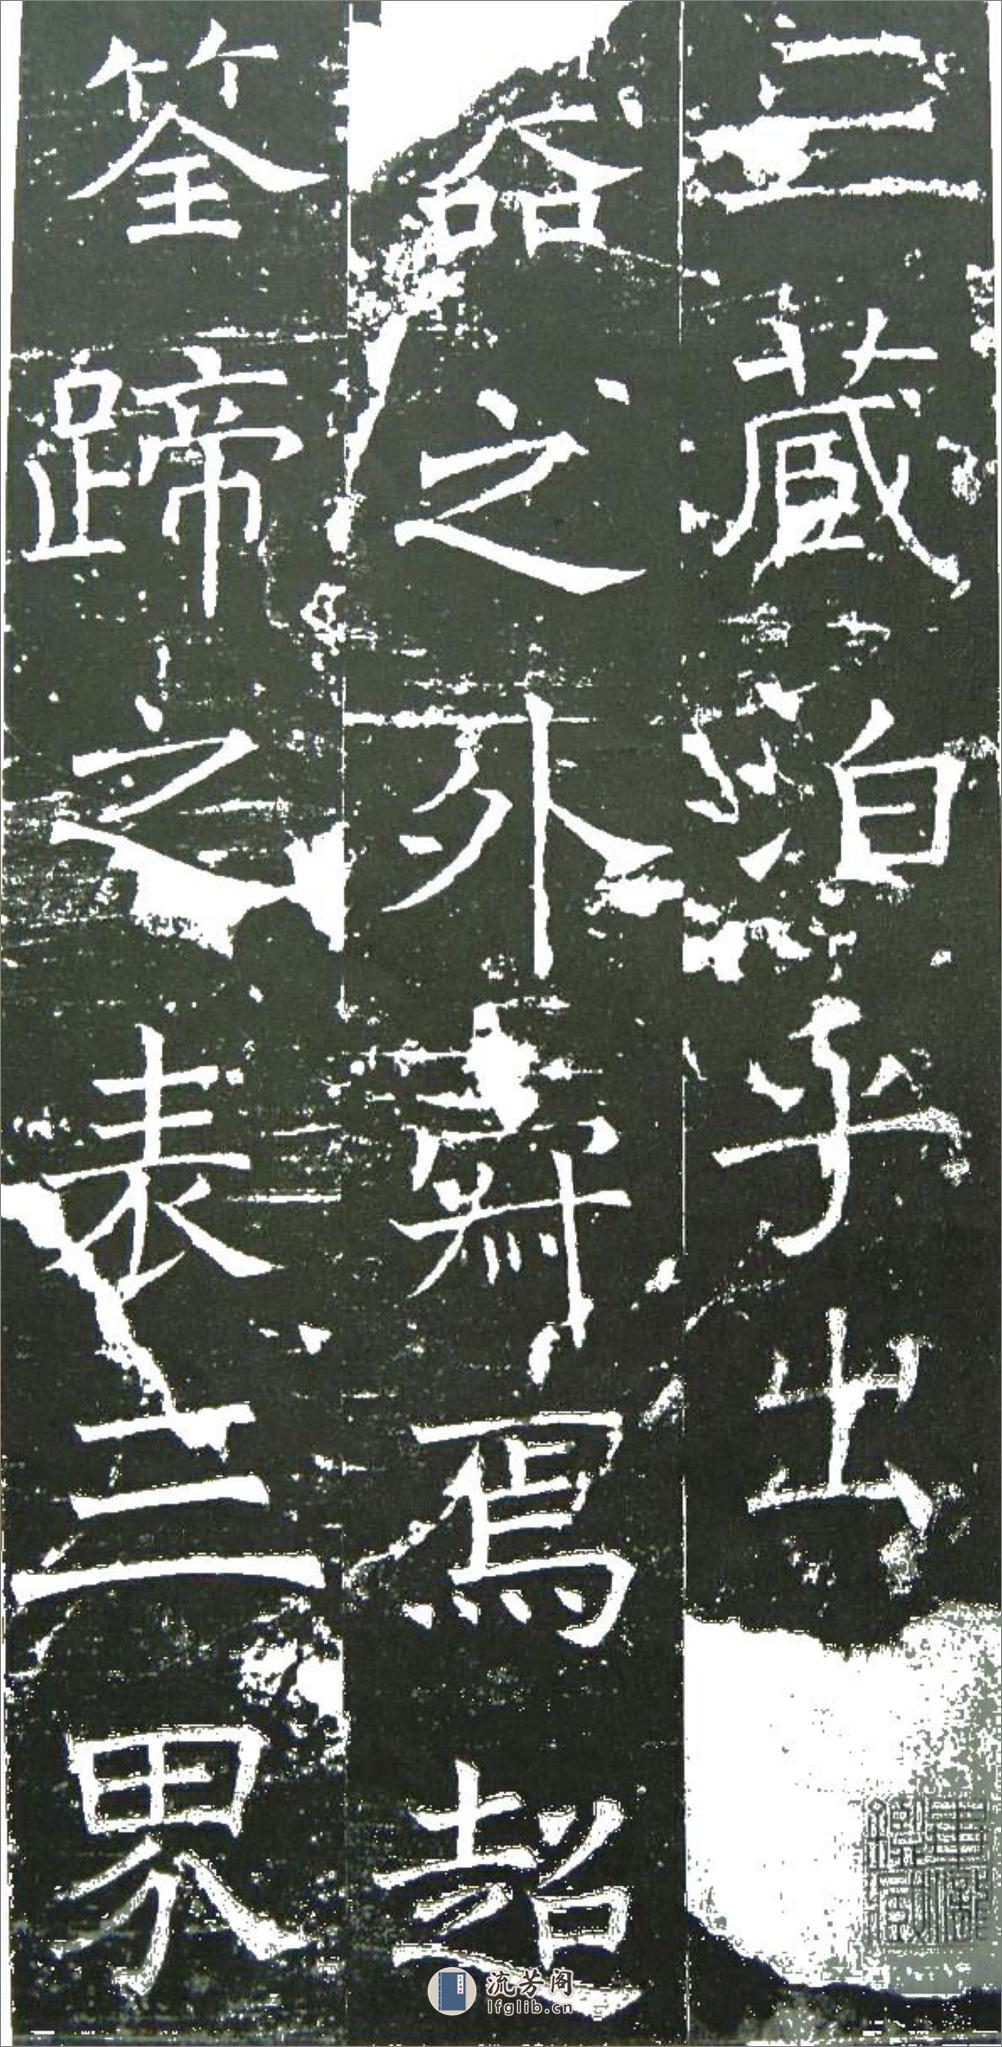 三藏泊乎出
之外焉超
筌蹄之表三界
流芳阁
lfglib.cn